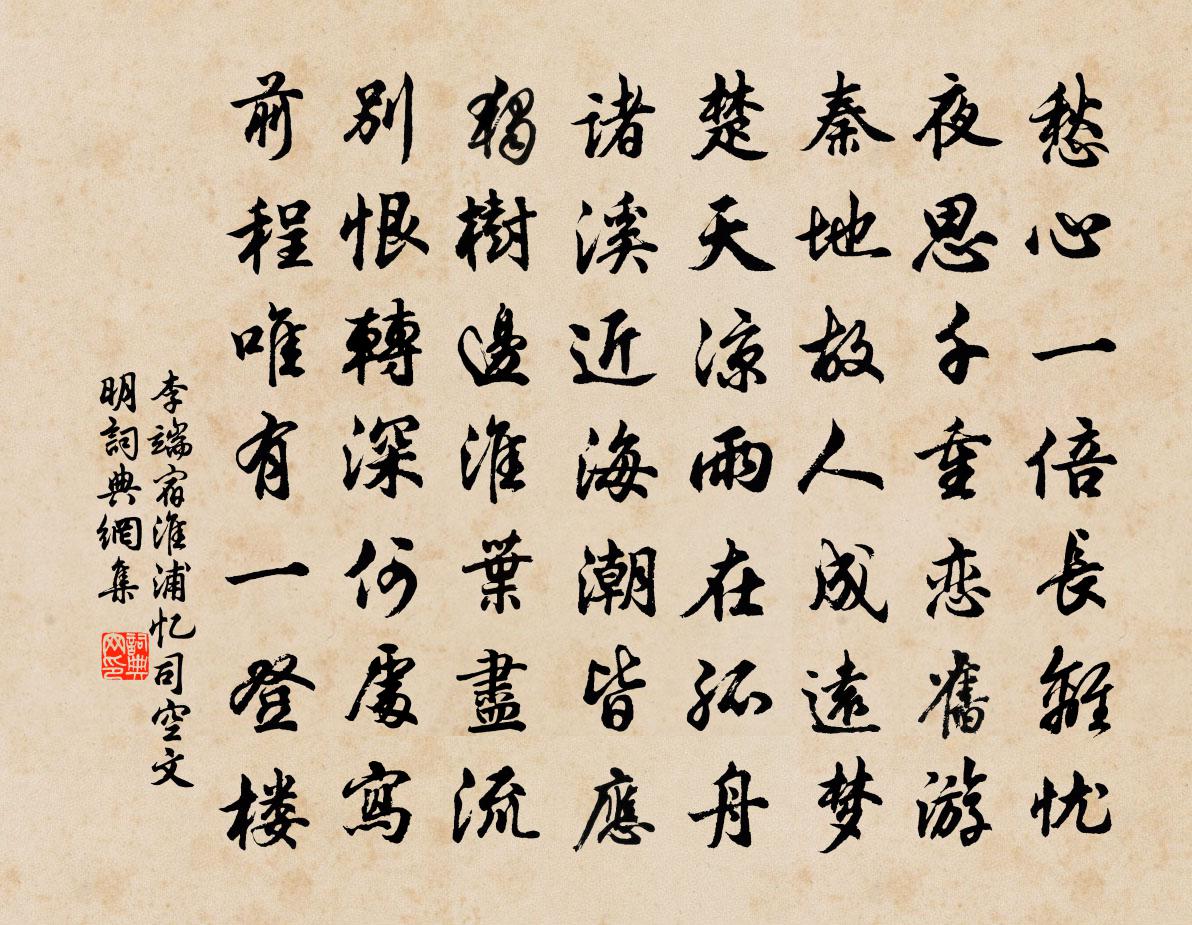 愁心一倍長離忧
夜思千重恋舊游
秦地故人成遠梦
楚天涼雨在孤舟
诸溪近海潮皆應
獨樹邊淮葉盡流
别恨轉深何處寫
前程唯有一登楼
李端宿淮浦忆司空文
明詞典網集
詞典网印